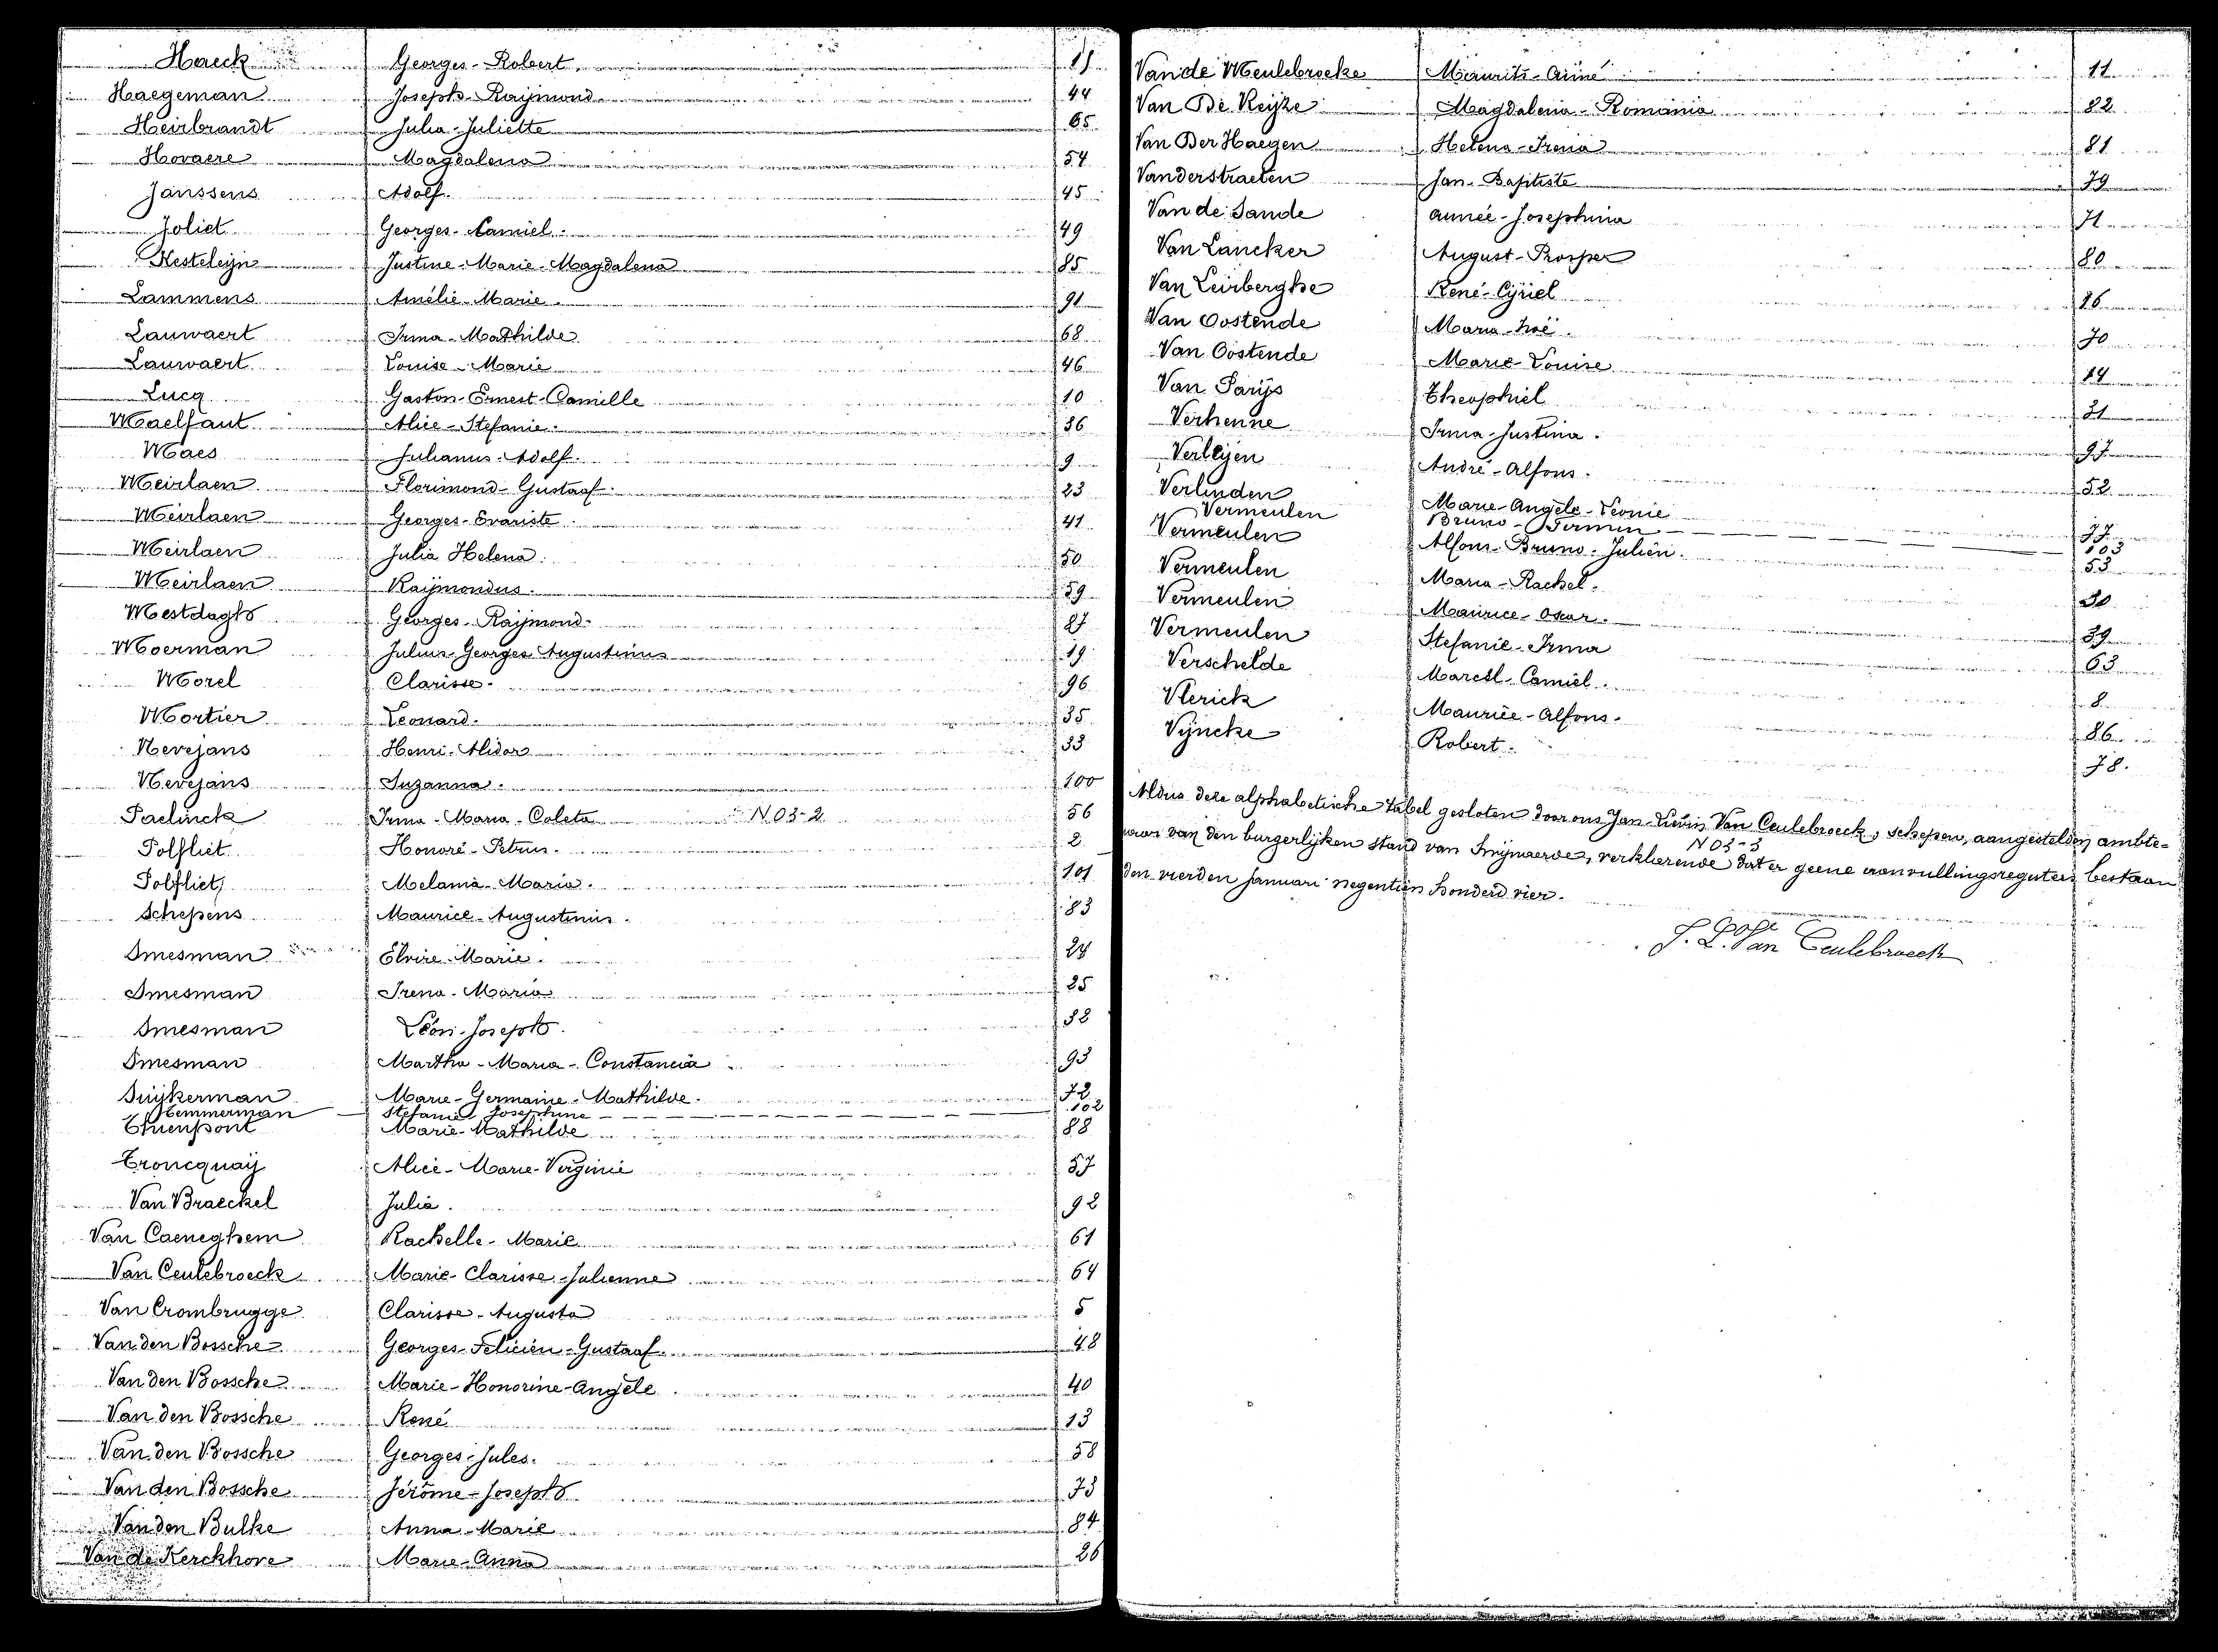 Haeck Georges-Robert. 15
Haegeman Joseph-Raÿmond 44
Heirbrandt Julia-Juliette 65
Hovaere Magdalena 54
Janssens Adolf. 45
Joliet Georges-Camiel. 49
Kesteleÿn Justine-Marie-Magdalena 85
Lammens Amélie-Marie. 91
Lauwaert Irma-Mathilde 68
Lauwaert Louise-Marie 46
Lucq Gaston-Ernest-Camille 10
Maelfaut Alice-Stefanie. 36
Maes Julianus-Adolf. 9
Meirlaen Florimond-Gustaaf. 23
Meirlaen Georges-Evariste. 41
Meirlaen Julia Helena. 50
Meirlaen Raÿmondus. 59
Mestdagh Georges-Raÿmond. 27
Moerman Julius-Georges Augustinus 19
Morel Clarisse. 96
Mortier Leonard. 35
Nevejans Henri-Alidor 33
Nevejans Suzanna. 100
Paelinck Irma-Maria-Coleta N 03-2 56
Polfliet Honoré-Petrus. 2
Polfliet Melania-Maria. 101
Schepens Maurice-Augustinus. 83
Smesman Elvire-Marie. 24
Smesman Irena-Maria 25
Smesman Léon-Joseph. 38
Smesman Martha-Maria-Constancia 93
Suÿkerman Marie-Germaine-Mathilde. 72
Temmerman Stefanie-Josephine 102
Thienpont Marie-Mathilde 88
Troncquaÿ Alice-Marie-Virginie 57
Van Braeckel Julia. 92
Van Caeneghem Rachelle-Marie 61
Van Ceulebroeck Marie-Clarisse-Julienne 64
Van Crombrugge Clarisse-Augusta 5
Van den Bossche Georges-Felicien-Gustaaf. 48
Van den Bossche Marie-Honorine-Angèle. 40
Van den Bossche René 13
Van den Bossche Georges-Jules. 58
Van den Bossche Jérôme-Joseph 73
Van den Bulke Anna-Marie 84
Van de Kerckhove Marie-Anna 26
Van de Meulebroeke Maurits-Aimé 11
Van De Keÿze Magdalena-Romania 82
Van Der Haegen Helena-Irena 81
Vanderstraeten Jan-Baptiste 79
Van de Sande Aimée-Josephina 71
Van Lancker August-Prosper 80
Van Leirberghe René-Cÿriel 16
Van Oostende Maria-Zoë. 70
Van Oostende Marie-Louise 14
Van Parÿs Theophiel 31
Verhenne Irma-Justina. 97
Verleÿen André-Alfons. 52
Verlinden Marie-Angèle-Leonie 77
Vermeulen Bruno-Firmin 103
Vermeulen Alfons-Bruno-Julien. 53
Vermeulen Maria-Rachel. 30
Vermeulen Maurice-Oscar. 39
Vermeulen Stefanie-Irma 63
Verschelde Marcel-Camiel. 8
Vlerick Maurice-Alfons. 86
Vÿncke Robert. 78.
Aldus deze alphabetische tabel gesloten door ons Jan-Livin Van Ceulebroeck, schepen, aangestelden ambte-
N 03-3
naar van den burgerlijken stand van Swÿnaerde, verklarende dat er geene aanvullingsregisters bestaan
den vierden Januari negentien honderd vier.
J. L. Van Ceulebroeck